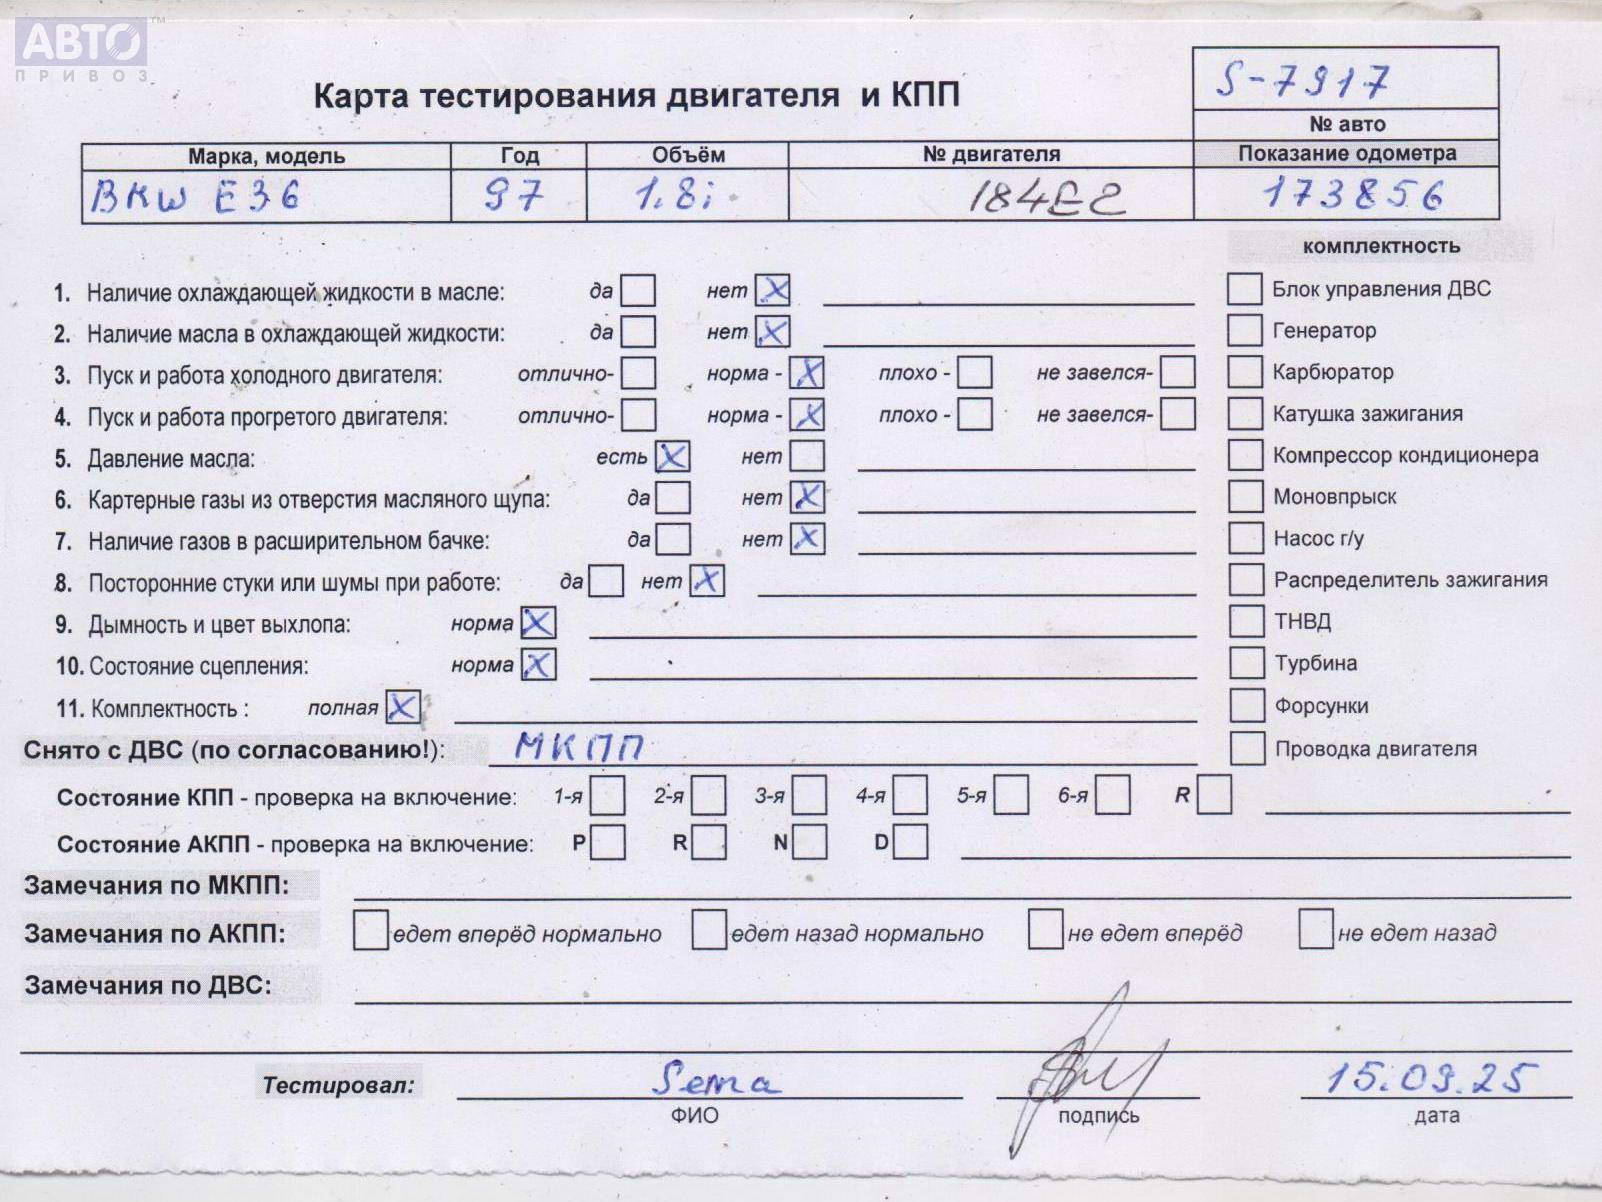 АВТО™
ПРИВОЗ
S-7917
№ авто
Карта тестирования двигателя и КПП
Марка, модель Год Объём № двигателя Показание одометра
BMW E36 97 1.8i 184E2 173856
комплектность
1. Наличие охлаждающей жидкости в масле: да нет X Блок управления ДВС
2. Наличие масла в охлаждающей жидкости: да нет X Генератор
3. Пуск и работа холодного двигателя: отлично- норма - X плохо - не завелся- Карбюратор
4. Пуск и работа прогретого двигателя: отлично- норма - X плохо - не завелся- Катушка зажигания
5. Давление масла: есть X нет Компрессор кондиционера
6. Картерные газы из отверстия масляного щупа: да нет X Моновпрыск
7. Наличие газов в расширительном бачке: да нет X Насос г/у
8. Посторонние стуки или шумы при работе: да нет X Распределитель зажигания
9. Дымность и цвет выхлопа: норма X ТНВД
10. Состояние сцепления: норма X Турбина
11. Комплектность : полная X Форсунки
Снято с ДВС (по согласованию!): МКПП Проводка двигателя
Состояние КПП - проверка на включение: 1-я 2-я 3-я 4-я 5-я 6-я R
Состояние АКПП - проверка на включение: P R N D
Замечания по МКПП:
Замечания по АКПП: едет вперёд нормально едет назад нормально не едет вперёд не едет назад
Замечания по ДВС:
Тестировал: Sema 15.09.25
ФИО подпись дата